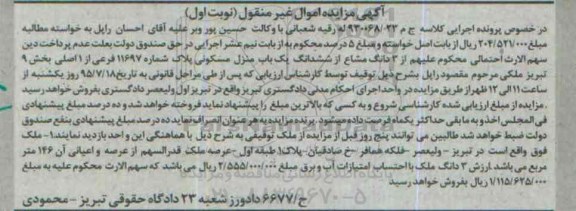 آگهی مزایده اموال غیر منقول (نوبت اول)
در خصوص پرونده اجرایی کلاسه ج م ۹۳۰۰۶۸/۲۳ له رقیه شعبانی با وکالت حسین پور وبر علیه آقای احسان رایل به خواسته مطالبه
مبلغ ۲۰۴/۵۲۱/۰۰۰ ریال از بابت اصل خواسته و مبلغ ۵ درصد محکوم به از بابت نیم عشر اجرایی در حق صندوق دولت بعلت عدم پرداخت دین
سهم الارث احتمالی محکوم علیهم از ۳ دانگ مشاع از ششدانگ یک باب منزل مسکونی پلاک شماره ۱۱۶۹۷ فرعی از ۱ اصلی بخش ۹
تبریز ملکی مرحوم مقصود رایل بشرح ذیل توقیف توسط کارشناس ارزیابی که پس از طی مراحل قانونی به تاریخ ۹۵/۷/۱۸ روز یکشنبه از
ساعت ۱۱ الی ۱۲ ظهر از طریق مزایده در واحد اجرای احکام مدنی دادگستری تبریز واقع در تبریز اول ولیعصر دادگستری بفروش خواهد رسید
. مزایده از مبلغ ارزیابی شده کارشناسی شروع و به کسی که بالاترین مبلغ را پیشنهاد نماید فروخته خواهد شد و ده درصد مبلغ پیشنهادی
فی المجلس اخذ و به مابقی حداکثر یکماه فرصت داده میشود. برنده مزایده به هر عنوان انصراف نماید ده درصد مبلغ پیشنهادی بنفع صندوق
دولت ضبط خواهد شد طالبین می توانند پنج روز قبل از مزایده از ملک توقیفی به شرح ذیل با هماهنگی این واحد بازدید نمایند ۱- ملک
فوق واقع است در تبریز - ولیعصر - فلکه همافر - خ صادقیان - پلاک ۱ طبقه اول - عرصه ملک قدرالسهم از عرصه و اعیانی آن ۱۴۶ متر
مربع می باشد ارزش ۳ دانگ ملک با احتساب امتیازات آب و برق مبلغ ۲/۵۵۵/۰۰۰/۰۰۰ ریال می باشد که سهم الارث محکوم علیه به مبلغ
۷/۱۱۵/۶۲۵/۰۰۰ ریال بفروش خواهد رسید
ح/۶۶۷۷ دادورز شعبه ۲۳ دادگاه حقوقی تبریز - محمودی